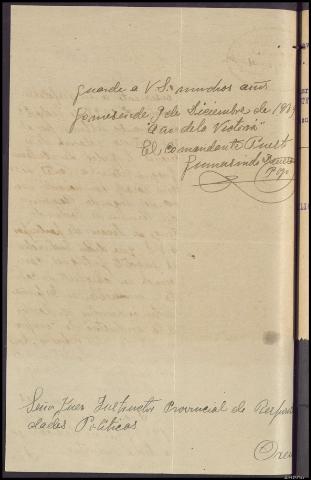 guarde a V.S. muchos años
Gomesende, 9 de Diciembre de 193
"Año de la Victoria"
El Comandante Puest
Gumersindo
Señor Juez Instructor Provincial de Respon
dades Políticas
Oren